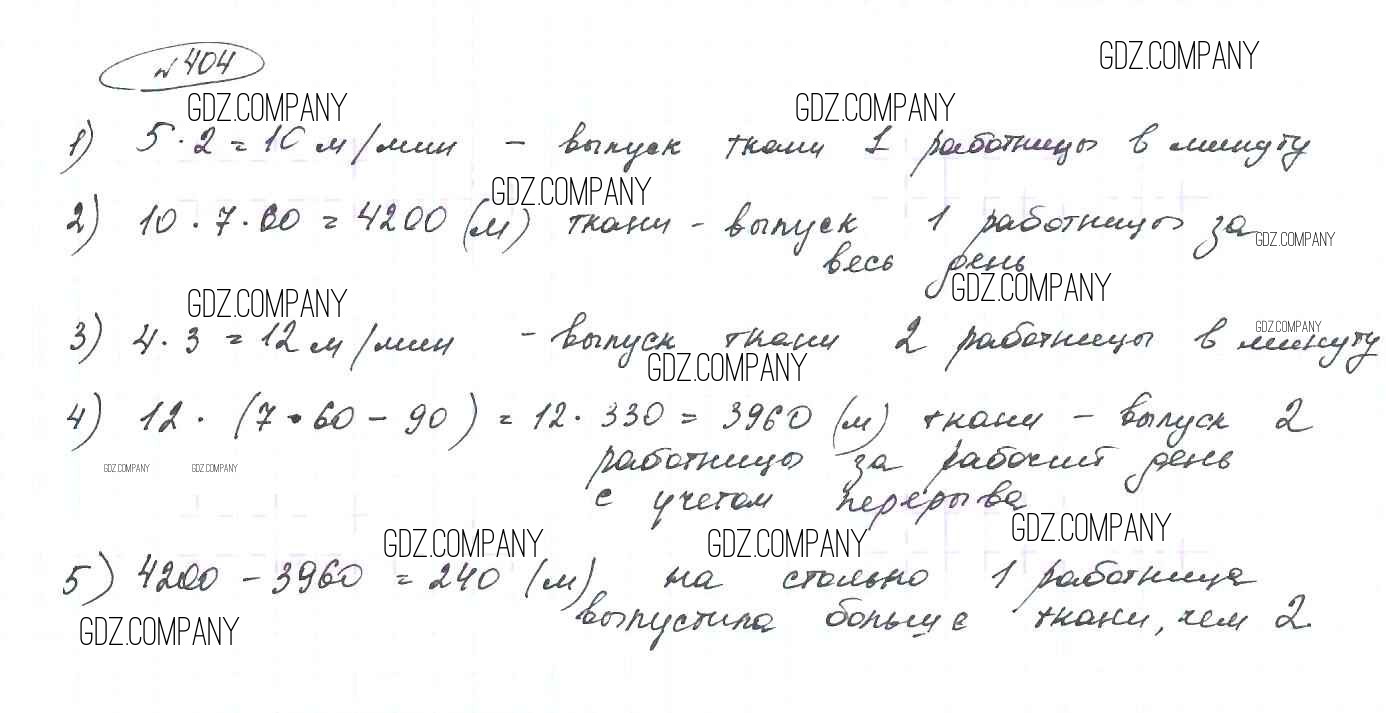 № 404
GDZ.COMPANY
GDZ.COMPANY GDZ.COMPANY
1) 5·2=10 м/мин – выпуск ткани 1 работницы в минуту
GDZ.COMPANY
2) 10·7·60=4200 (м) ткани – выпуск 1 работницы за
GDZ.COMPANY
весь день
GDZ.COMPANY GDZ.COMPANY
3) 4·3=12 м/мин – выпуск ткани 2 работницы в минуту
GDZ.COMPANY
GDZ.COMPANY
4) 12·(7·60–90)=12·330=3960 (м) ткани – выпуск 2
работницы за рабочий день
GDZ.COMPANY GDZ.COMPANY
с учетом перерыва
GDZ.COMPANY GDZ.COMPANY GDZ.COMPANY
5) 4200–3960=240 (м) на столько 1 работница
выпустила больше ткани, чем 2.
GDZ.COMPANY